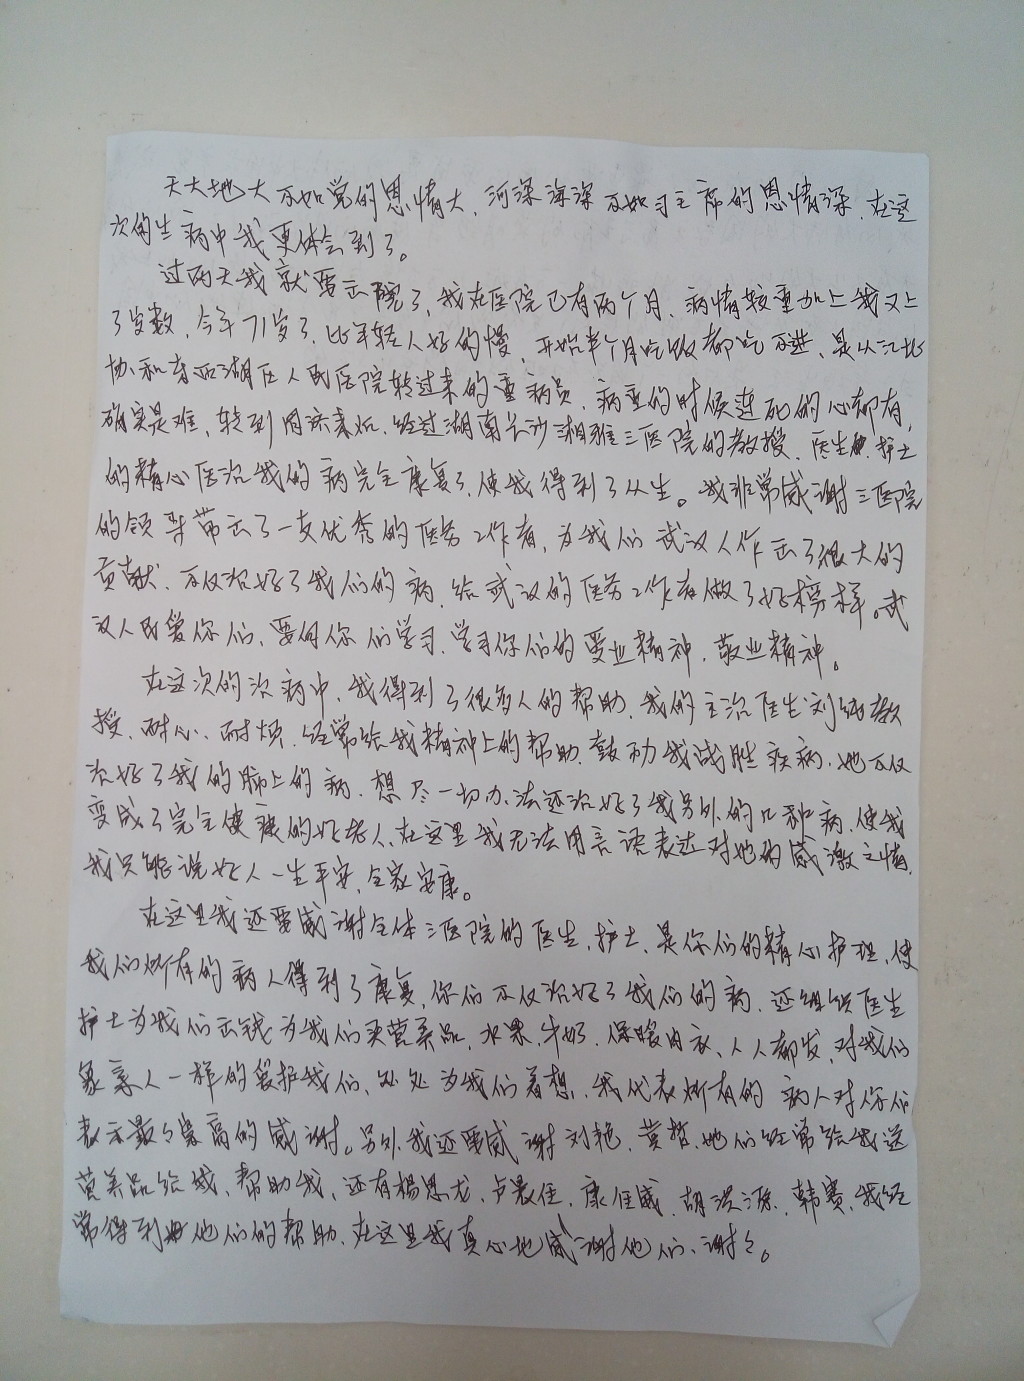 天大地大不如党的恩情大、河深海深不如习主席的恩情深、在这
次的生病中我更体会到了。
过两天我就要出院了、我在医院已有两个月、病情较重加上我又上
了岁数、今年71岁了、比年轻人好的慢、开始半个月吃饭都吃不进、是从江北
协和东西湖区人民医院转过来的重病员、病重的时候连死的心都有,
确实是难、转到同济来后、经过湖南长沙湘雅三医院的教授、医生、护士
的精心医治我的病完全康复了、使我得到了从生。我非常感谢三医院
的领导带出了一支优秀的医务工作者、为我们武汉人作出了很大的
贡献、不仅治好了我们的病、给武汉的医务工作者做了好榜样。武
汉人民爱你们、要向你们学习、学习你们的爱业精神、敬业精神。
在这次的次病中、我得到了很多人的帮助、我的主治医生刘教
授、耐心、耐烦、经常给我精神上的帮助、鼓励我战胜疾病、她不仅
治好了我的肺上的病、想尽一切办法还治好了我另外的几种病、使我
变成了完全健康的好老人、在这里我无法用言语表达对她的感激之情、
我只能说好人一生平安、全家安康。
在这里我还要感谢全体三医院的医生、护士、是你们的精心护理、使
我们所有的病人得到了康复、你们不仅治好了我们的病、还组织医生
护士为我们出钱为我们买营养品、水果、牛奶、保暖内衣、人人都发、对我们
象亲人一样的爱护我们、处处为我们着想、我代表所有的病人对你们
表示最々崇高的感谢。另外我还要感谢刘艳、黄哲、她们经常给我送
营养品给我、帮助我、还有杨思龙、卢晨佳、康佳威、胡洪源、韩赛、我经
常得到他们的帮助、在这里我真心地感谢他们、谢々。